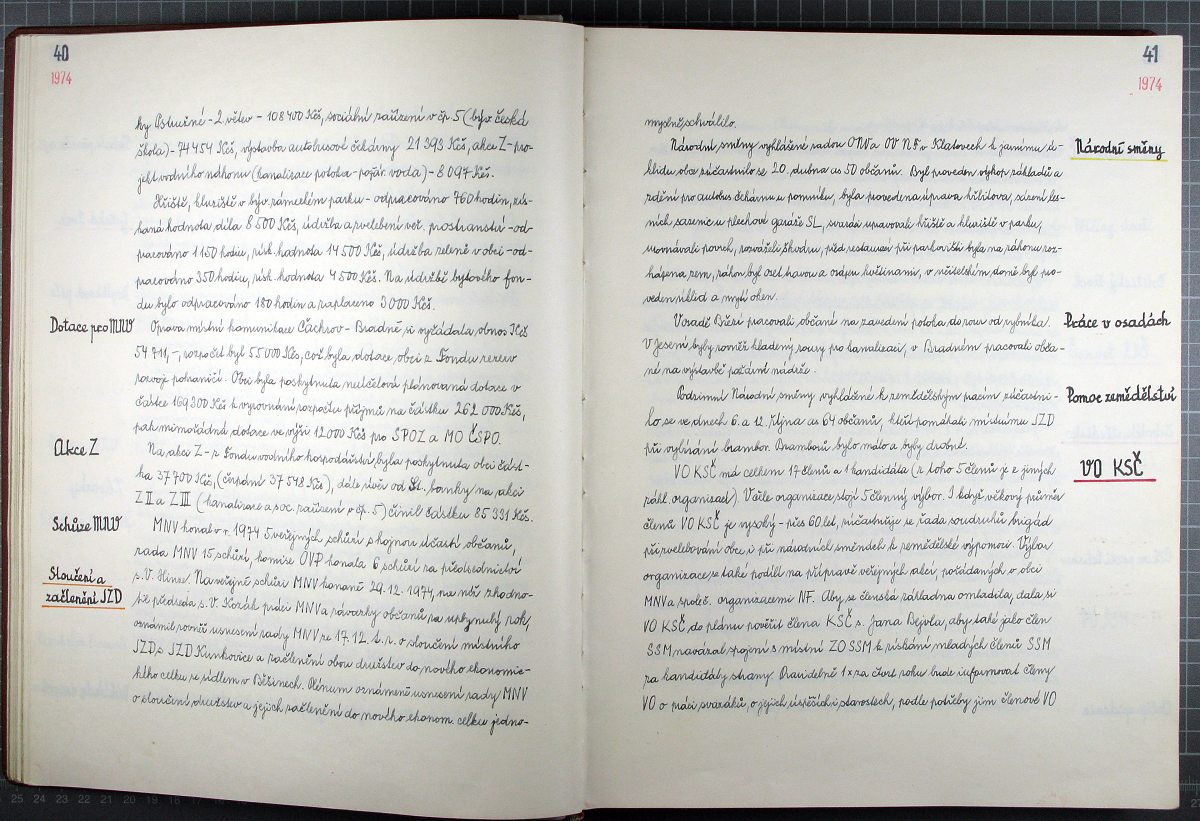 40
1974
ky Ostružné - 2. větev - 108 400 Kčs, sociální zařízení v čp. 5 (býv. česká
škola) - 74 454 Kčs, výstavba autobusové čekárny 21 393 Kčs, akce Z - pro-
jekt vodního náhonu (kanalizace potoka - požár. voda) - 8 097 Kčs.
Hřiště, kluziště v býv. zámeckém parku - odpracováno 760 hodin, zís-
kaná hodnota díla 8 500 Kčs, údržba a zvelebení veř. prostranství - od-
pracováno 1 150 hodin, získ. hodnota 14 500 Kčs, údržba zeleně v obci - od-
pracováno 350 hodin, získ. hodnota 4 500 Kčs. Na údržbě bytového fon-
du bylo odpracováno 180 hodin a zaplaceno 3 000 Kčs.
Dotace pro MNV
Oprava místní komunikace Čachrov - Bradné si vyžádala obnos Kčs
54 711,-, rozpočet byl 55 000 Kčs, což byla dotace obci z Fondu rezerv
rozvoje pohraničí. Obci byla poskytnuta neúčelová plánovaná dotace v
částce 169 300 Kčs k vyrovnání rozpočtu příjmů na částku 262 000 Kčs,
pak mimořádná dotace ve výši 12 000 Kčs pro SPOZ a MO ČSPO.
Akce Z
Na akci Z - z Fondu vodního hospodářství byla poskytnuta obci část-
ka 37 700 Kčs, (čerpání 37 548 Kčs), dále úvěr od St. banky na akci
Z II a Z III (kanalizace a soc. zařízení v čp. 5) činil částku 85 331 Kčs.
Schůze MNV
MNV konal v r. 1974 5 veřejných schůzí s hojnou účastí občanů,
rada MNV 15 schůzí, komise OVP konala 6 schůzí za předsednictví
s. V. Hinze. Na veřejné schůzi MNV konané 29. 12. 1974, na níž zhodno-
til předseda s. V. Korál práci MNV a závazky občanů za uplynulý rok,
Sloučení a
začlenění JZD
oznámil rovněž usnesení rady MNV ze 17. 12. t. r. o sloučení místního
JZD s JZD Kunkovice a začlenění obou družstev do nového ekonomic-
kého celku se sídlem v Běšinech. Plénum oznámené usnesení rady MNV
o sloučení družstev a jejich začlenění do nového ekonom. celku jedno-
41
1974
myslně schválilo.
Národní směny
Národní směny vyhlášené radou ONV a OV NF v Klatovech k jarnímu ú-
klidu obce zúčastnilo se 20. dubna as 50 občanů. Byl proveden výkop základů a
zdění pro autobus. čekárnu u pomníku, byla provedena úprava hřbitova, sázení les-
ních sazenic u plechové garáže SL, svazáci upravovali hřiště a kluziště v parku,
urovnávali povrch, rozváželi škváru, před restaurací při parkovišti byla na náhonu roz-
házena zem, náhon byl oset travou a osázen květinami, v učitelském domě byl pro-
veden úklid a mytí oken.
Práce v osadách
V osadě Březí pracovali občané na zavedení potoka do rour od rybníka.
V Jesení byly rovněž kladeny roury pro kanalizaci, v Bradném pracovali obča-
né na výstavbě požární nádrže.
Pomoc zemědělství
Podzimní Národní směny vyhlášené k zemědělským pracím zúčastni-
lo se ve dnech 6. a 12. října as 64 občanů, kteří pomáhali místnímu JZD
při vybírání brambor. Bramborů bylo málo a byly drobné.
VO KSČ
VO KSČ má celkem 17 členů a 1 kandidáta (z toho 5 členů je z jiných
zákl. organizací). V čele organizace stojí 5 členný výbor. I když věkový průměr
členů VO KSČ je vysoký - přes 60 let, zúčastňuje se řada soudruhů brigád
při zvelebování obce i při národních směnách k zemědělské výpomoci. Výbor
organizace se také podílí na přípravě veřejných akcí, pořádaných v obci
MNV a společ. organizacemi NF. Aby se členská základna omladila, dala si
VO KSČ do plánu pověřit člena KSČ s. Jana Bejvla, aby také jako člen
SSM navázal spojení s místní ZO SSM k získání mladých členů SSM
za kandidáty strany. Pravidelně 1x za čtvrt roku bude informovat členy
VO o práci svazáků, o jejich úspěších i starostech, podle potřeby jim členové VO